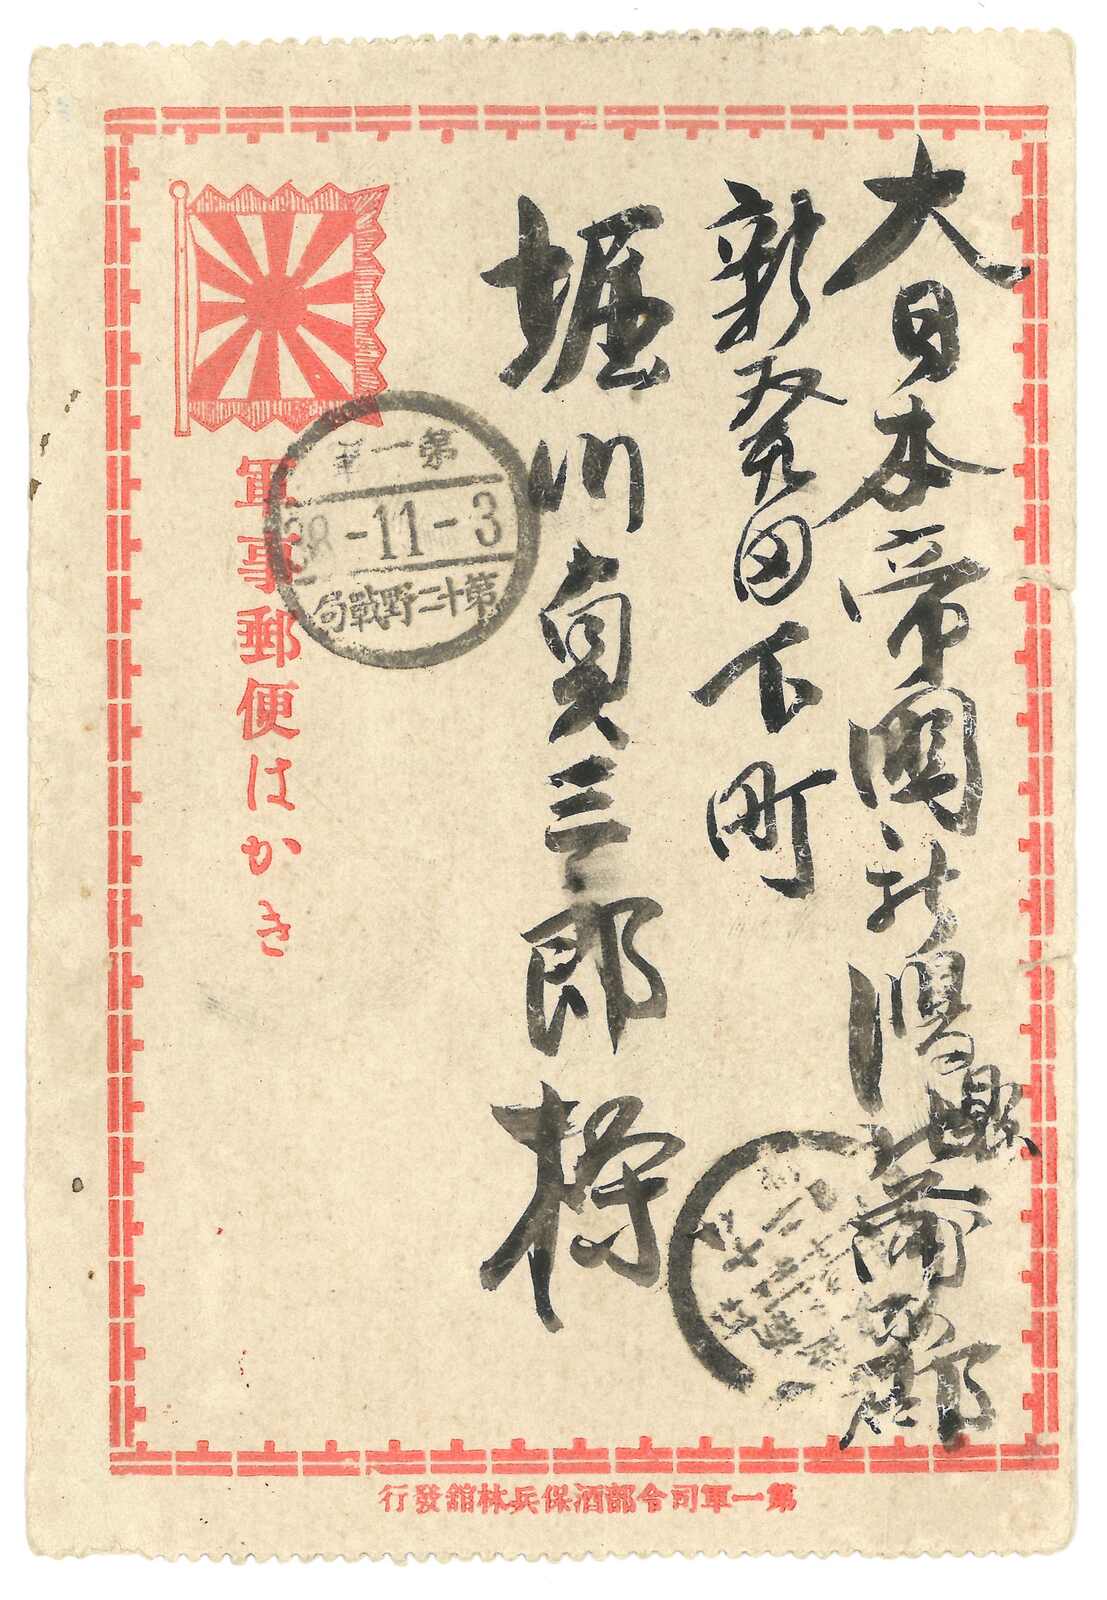 大日本帝國新潟縣蒲原郡
新發田下町
堀川貞三郎様
軍事郵便はかき
第一軍
38-11-3
第十二野戰局
第一軍司令部酒保兵林舘發行